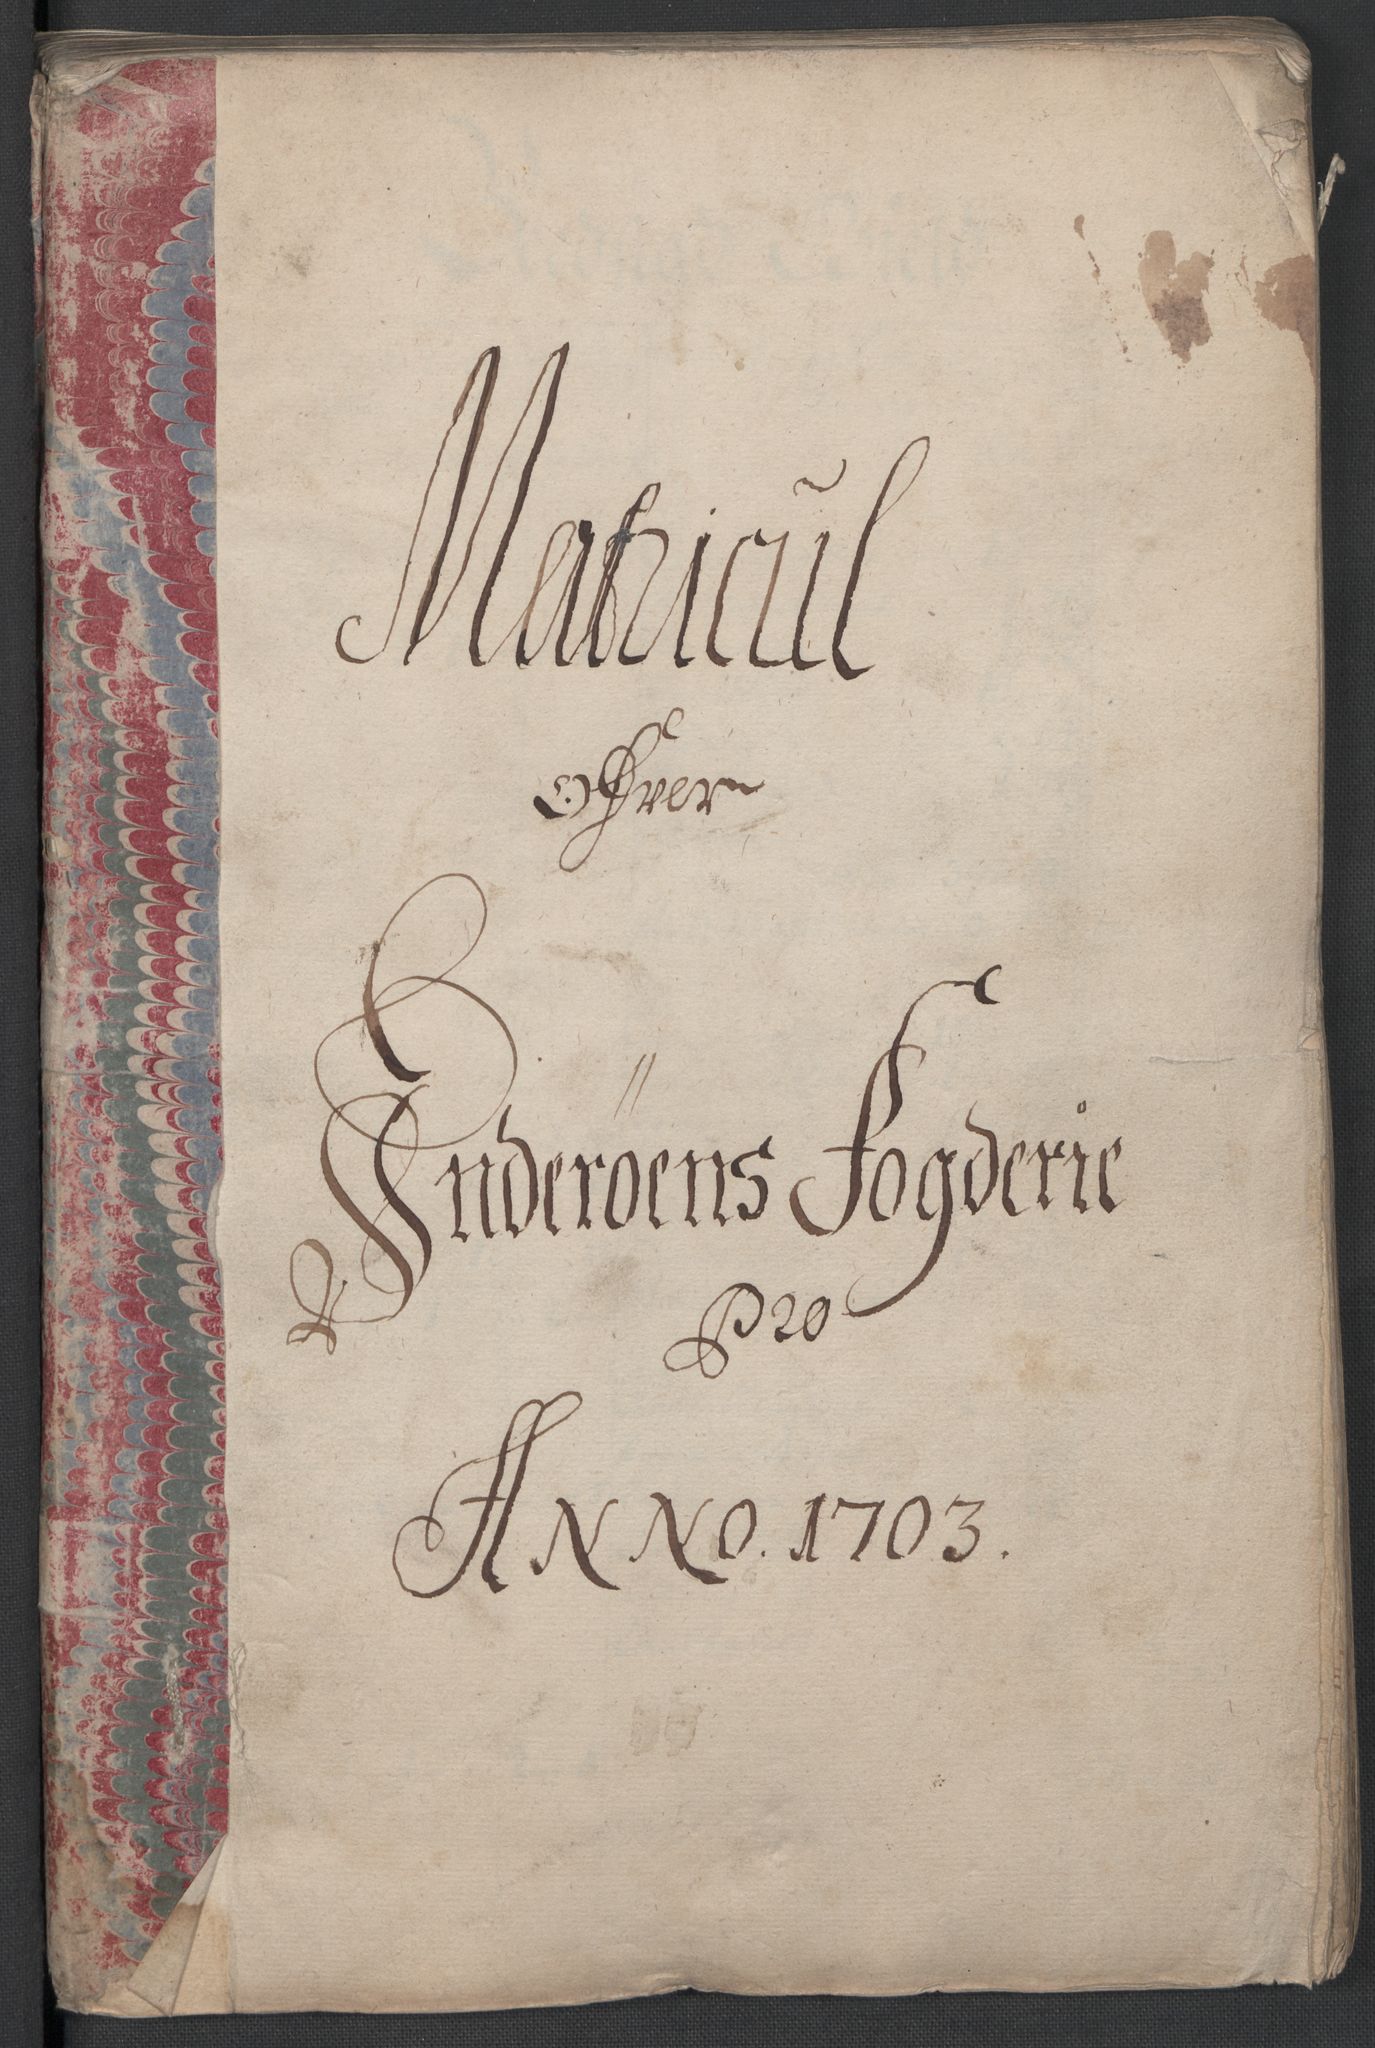 Matricul
Ofver
Inderöens Fogderie
Pro
ANNO. 1703.